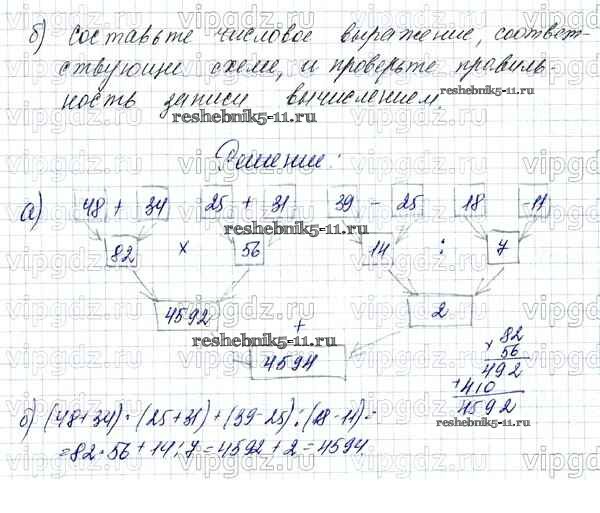 б) Составьте числовое выражение, соответ-
ствующие схеме, и проверьте правиль-
ность записи вычислением.
reshebnik5-11.ru
Решение:
а) 48 + 34 25 + 31 39 - 25 18 - 11
reshebnik5-11.ru
82 × 56 14 : 7
4592 2
+
reshebnik5-11.ru
4594
× 82
56
492
+ 410
4592
б) (48+34)·(25+31)+(39-25):(18-11)=
=82·56+14:7=4592+2=4594.
reshebnik5-11.ru
vipgdz.ru